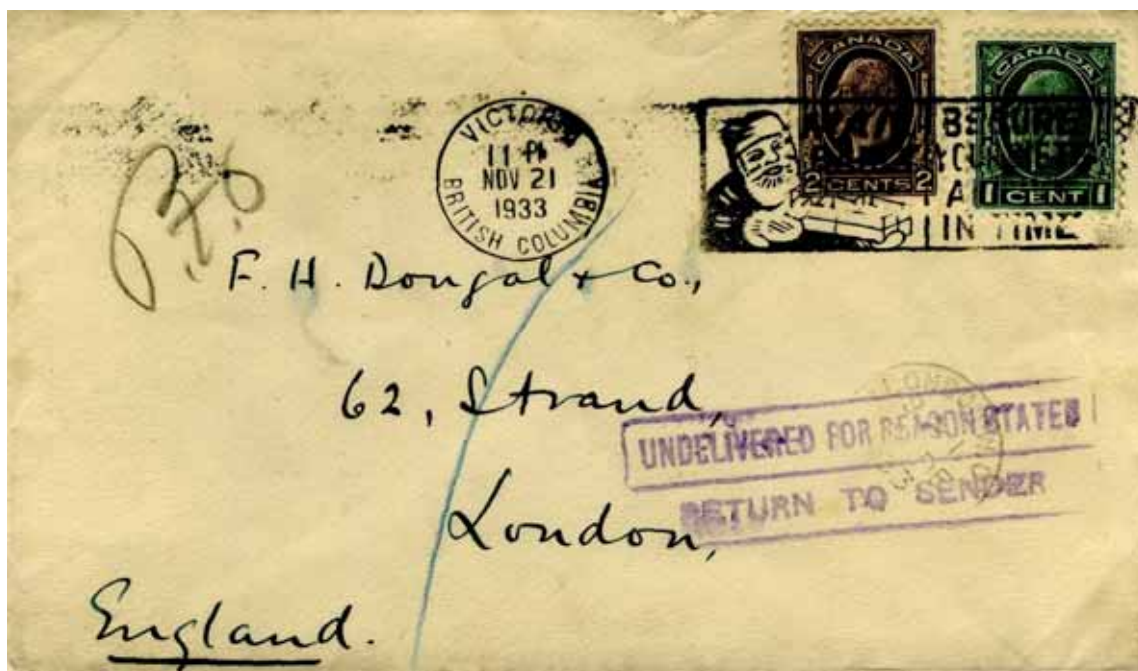 CANADA
2 CENTS 2
CANADA
1 CENT 1
VICTORIA
NOV 21
1933
BRITISH COLUMBIA
IN TIME
F. H. Dougal & Co.,
62, Strand,
London,
England.
UNDELIVERED FOR REASON STATED
RETURN TO SENDER